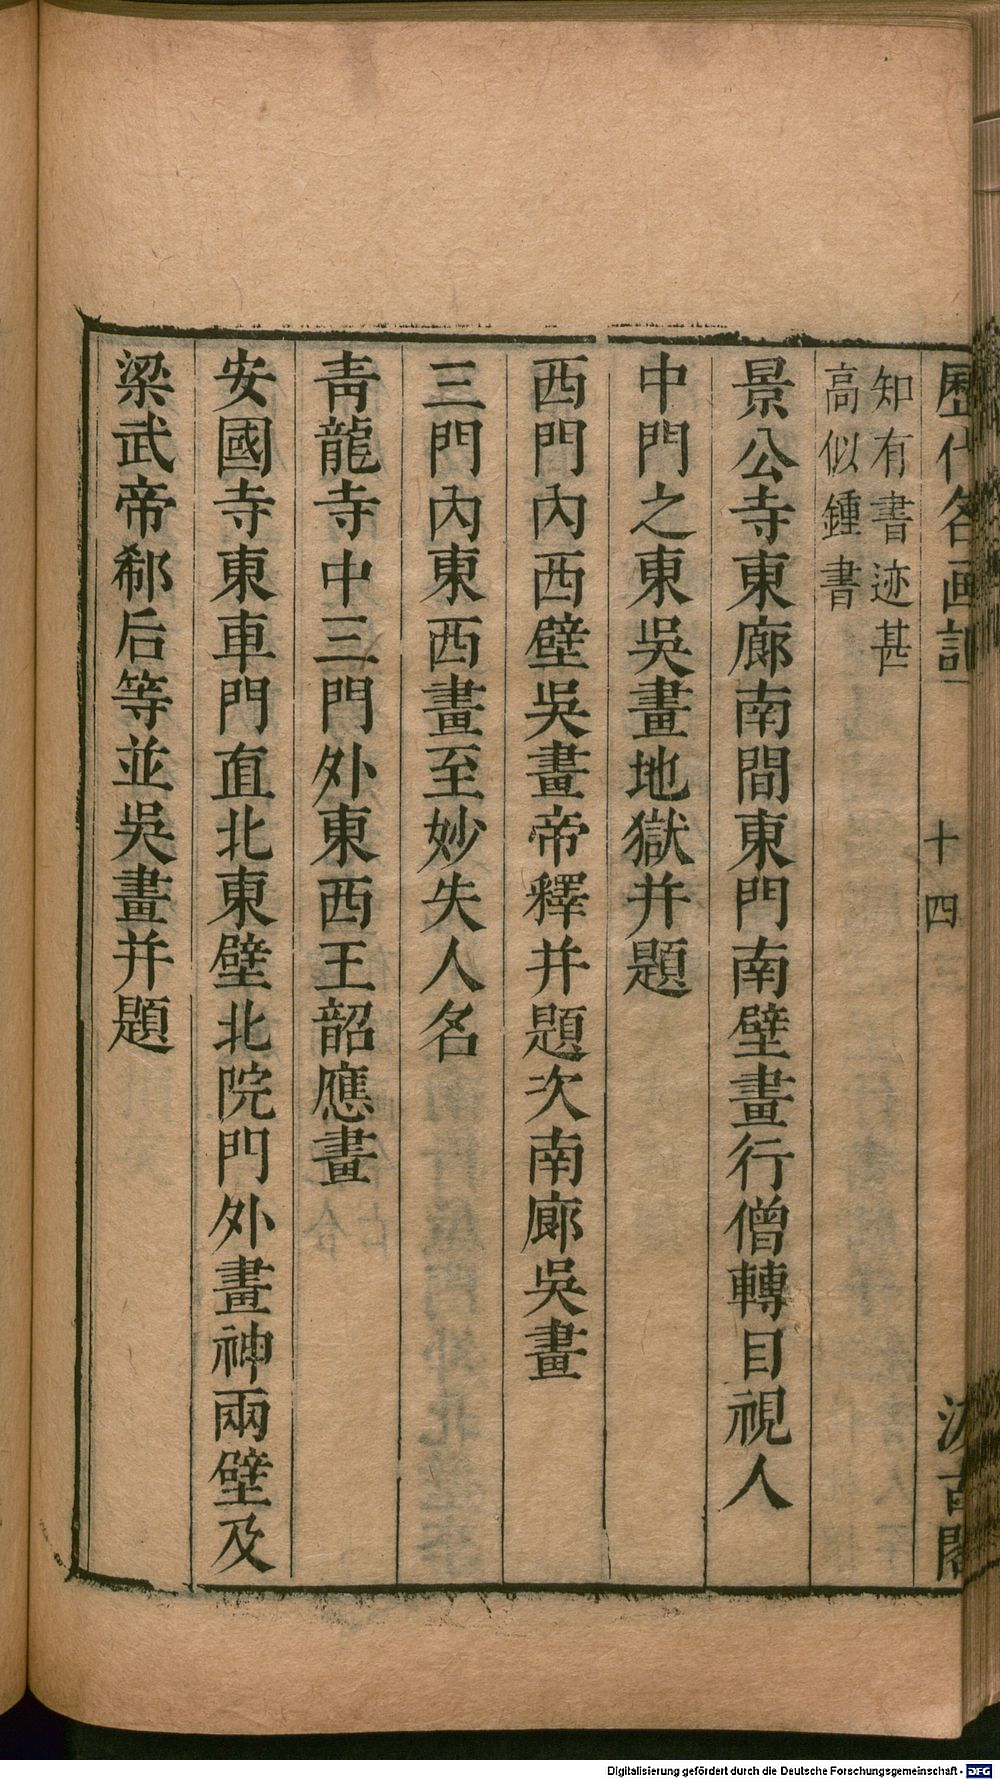 歷代名画記
十四
汲古閣
知有書迹甚
高似鍾書
景公寺東廊南間東門南壁畫行僧轉目視人
中門之東吳畫地獄并題
西門內西壁吳畫帝釋并題次南廊吳畫
三門內東西畫至妙失人名
靑龍寺中三門外東西王韶應畫
安國寺東車門直北東壁北院門外畫神兩壁及
梁武帝郗后等並吳畫并題
Digitalisierung gefördert durch die Deutsche Forschungsgemeinschaft - DFG